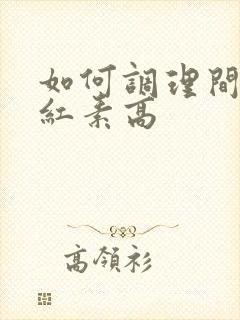 如何調理間
紅素高
高領衫